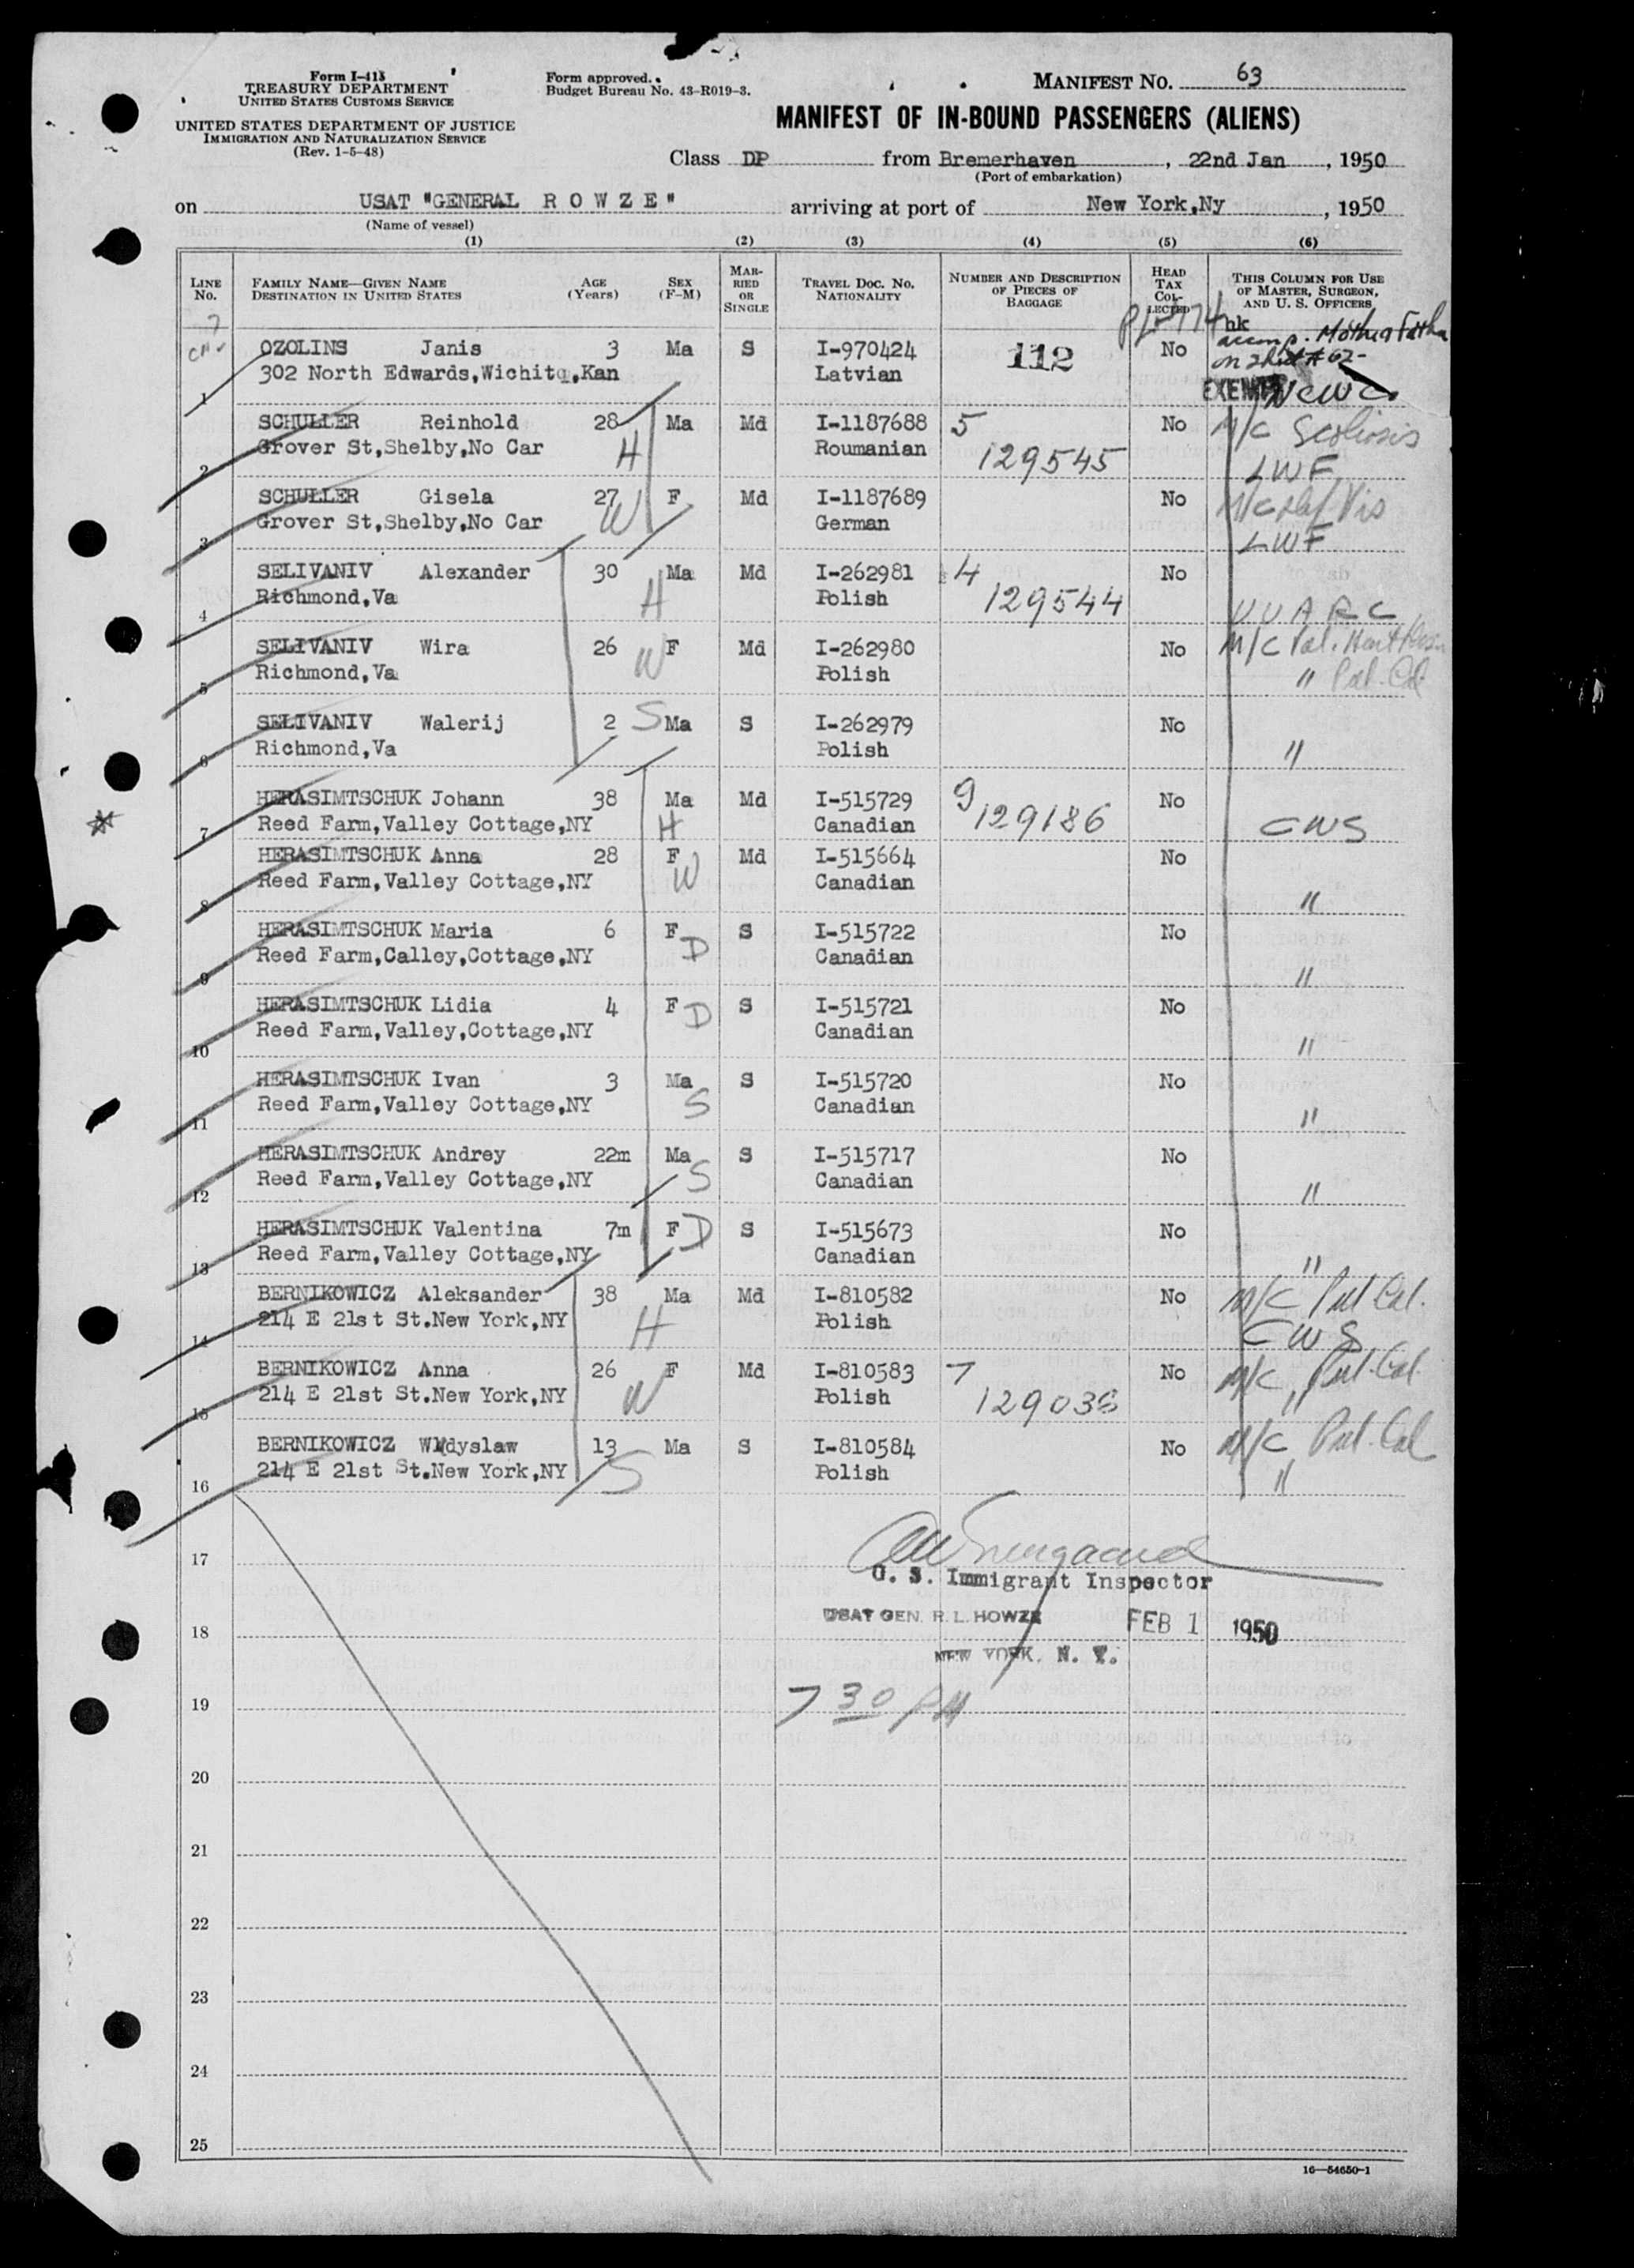 Form I-415
TREASURY DEPARTMENT
UNITED STATES CUSTOMS SERVICE
UNITED STATES DEPARTMENT OF JUSTICE
IMMIGRATION AND NATURALIZATION SERVICE
(Rev. 1-5-48)
Form approved.
Budget Bureau No. 43-R019-3.
MANIFEST NO. 63
MANIFEST OF IN-BOUND PASSENGERS (ALIENS)
Class DP from Bremerhaven, 22nd Jan, 1950
(Port of embarkation)
on USAT "GENERAL R O W Z E" arriving at port of New York,Ny, 1950
(Name of vessel)
(1) (2) (3) (4) (5) (6)
LINE No. FAMILY NAME—GIVEN NAME DESTINATION IN UNITED STATES AGE (Years) SEX (F-M) MARRIED OR SINGLE TRAVEL DOC. NO. NATIONALITY NUMBER AND DESCRIPTION OF PIECES OF BAGGAGE HEAD TAX COLLECTED THIS COLUMN FOR USE OF MASTER, SURGEON, AND U. S. OFFICERS
OZOLINS Janis 3 Ma S I-970424 112 No Mother & Father
1 302 North Edwards,Wichita,Kan Latvian EXEMPT NCWC
SCHULLER Reinhold 28 Ma Md I-1187688 5 No M/C Scoliosis
2 Grover St,Shelby,No Car H Roumanian 129545 LWF
SCHULLER Gisela 27 F Md I-1187689 No M/C Def Vis
3 Grover St,Shelby,No Car W German LWF
SELIVANIV Alexander 30 Ma Md I-262981 4 No
4 Richmond,Va H Polish 129544 UUARC
SELIVANIV Wira 26 F Md I-262980 No M/C
5 Richmond,Va W Polish "
SELIVANIV Walerij 2 S Ma S I-262979 No
6 Richmond,Va Polish "
HERASIMTSCHUK Johann 38 Ma Md I-515729 9 No
7 Reed Farm,Valley Cottage,NY H Canadian 129186 CWS
HERASIMTSCHUK Anna 28 F Md I-515664 No
8 Reed Farm,Valley Cottage,NY W Canadian "
HERASIMTSCHUK Maria 6 F S I-515722 No
9 Reed Farm,Calley,Cottage,NY D Canadian "
HERASIMTSCHUK Lidia 4 F D S I-515721 No
10 Reed Farm,Valley,Cottage,NY Canadian "
HERASIMTSCHUK Ivan 3 Ma S I-515720 No
11 Reed Farm,Valley Cottage,NY S Canadian "
HERASIMTSCHUK Andrey 22m Ma S I-515717 No
12 Reed Farm,Valley Cottage,NY S Canadian "
HERASIMTSCHUK Valentina 7m F D S I-515673 No
13 Reed Farm,Valley Cottage,NY Canadian "
BERNIKOWICZ Aleksander 38 Ma Md I-810582 No M/C Pul Cal.
14 214 E 21st St.New York,NY H Polish CWS
BERNIKOWICZ Anna 26 F Md I-810583 7 No M/C Pul. Cal
15 214 E 21st St.New York,NY W Polish "
BERNIKOWICZ Wldyslaw 13 Ma S I-810584 No M/C Pul. Cal
16 214 E 21st St.New York,NY S Polish "
17
U. S. Immigrant Inspector
18 USAT GEN. R. L. HOWZE FEB 1 1950
NEW YORK, N. Y.
19 7 30 PM
20
21
22
23
24
25
16—54650-1